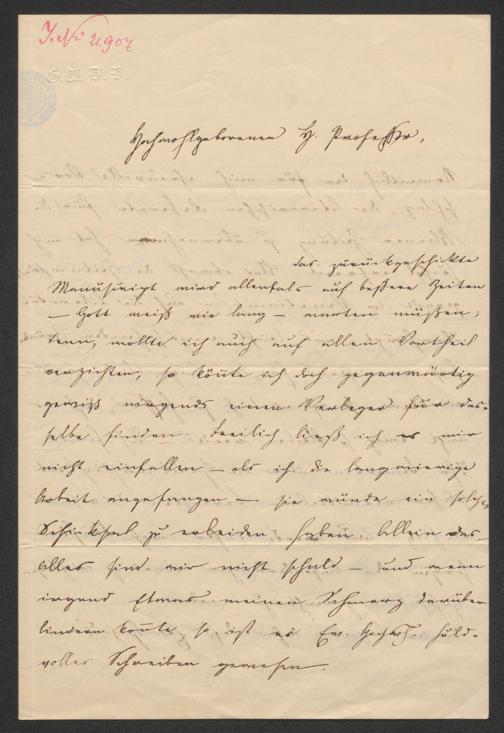 J. N: 21.907
Hochwohlgeborener H. Professor,
das zurückgeschikte
Manuscript wird allenfals auf beßere Zeiten
– Gott weiß wie lang – warten müßen;
denn, wollte ich auch auf allem Vortheil
verzichten, so könte ich doch gegenwärtig
gewiß nirgends einen Verleger für das-
selbe finden. Freilich ließ ich es mir
nicht einfallen – als ich die langwierige
Arbeit angefangen – sie würde ein solches
Schicksal zu erleiden haben. Allein das
alles sind wir nicht schuld – und wenn
irgend Etwas meinen Schmerz darüber
lindern konte, so ist es Ew. Hochw. huld-
volles Schreiben gewesen.